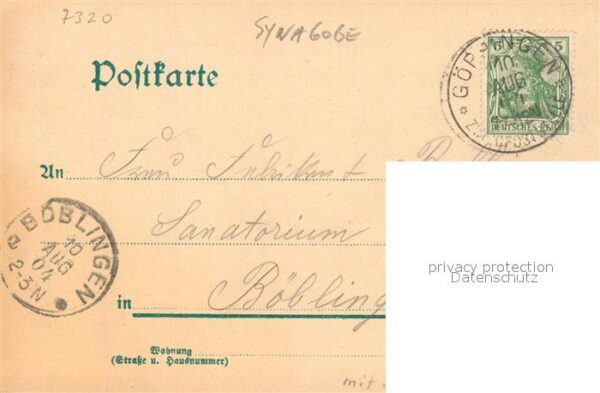 7320
SYNAGOGE
Postkarte
GÖPPINGEN
10
AUG
5
DEUTSCHES REICH
An Frau Fabrikant
Sanatorium
BÖBLINGEN
10
AUG
04
2-3N
in Böbling
privacy protection
Datenschutz
Wohnung
(Straße u. Hausnummer)
mit